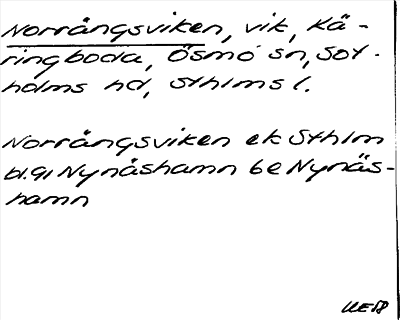 Norrångsviken, vik, Kä-
ringboda, Ösmo sn, Sot-
holms hd, Sthlms l.
Norrångsviken ek Sthlm
bl.91 Nynäshamn 6e Nynäs-
hamn